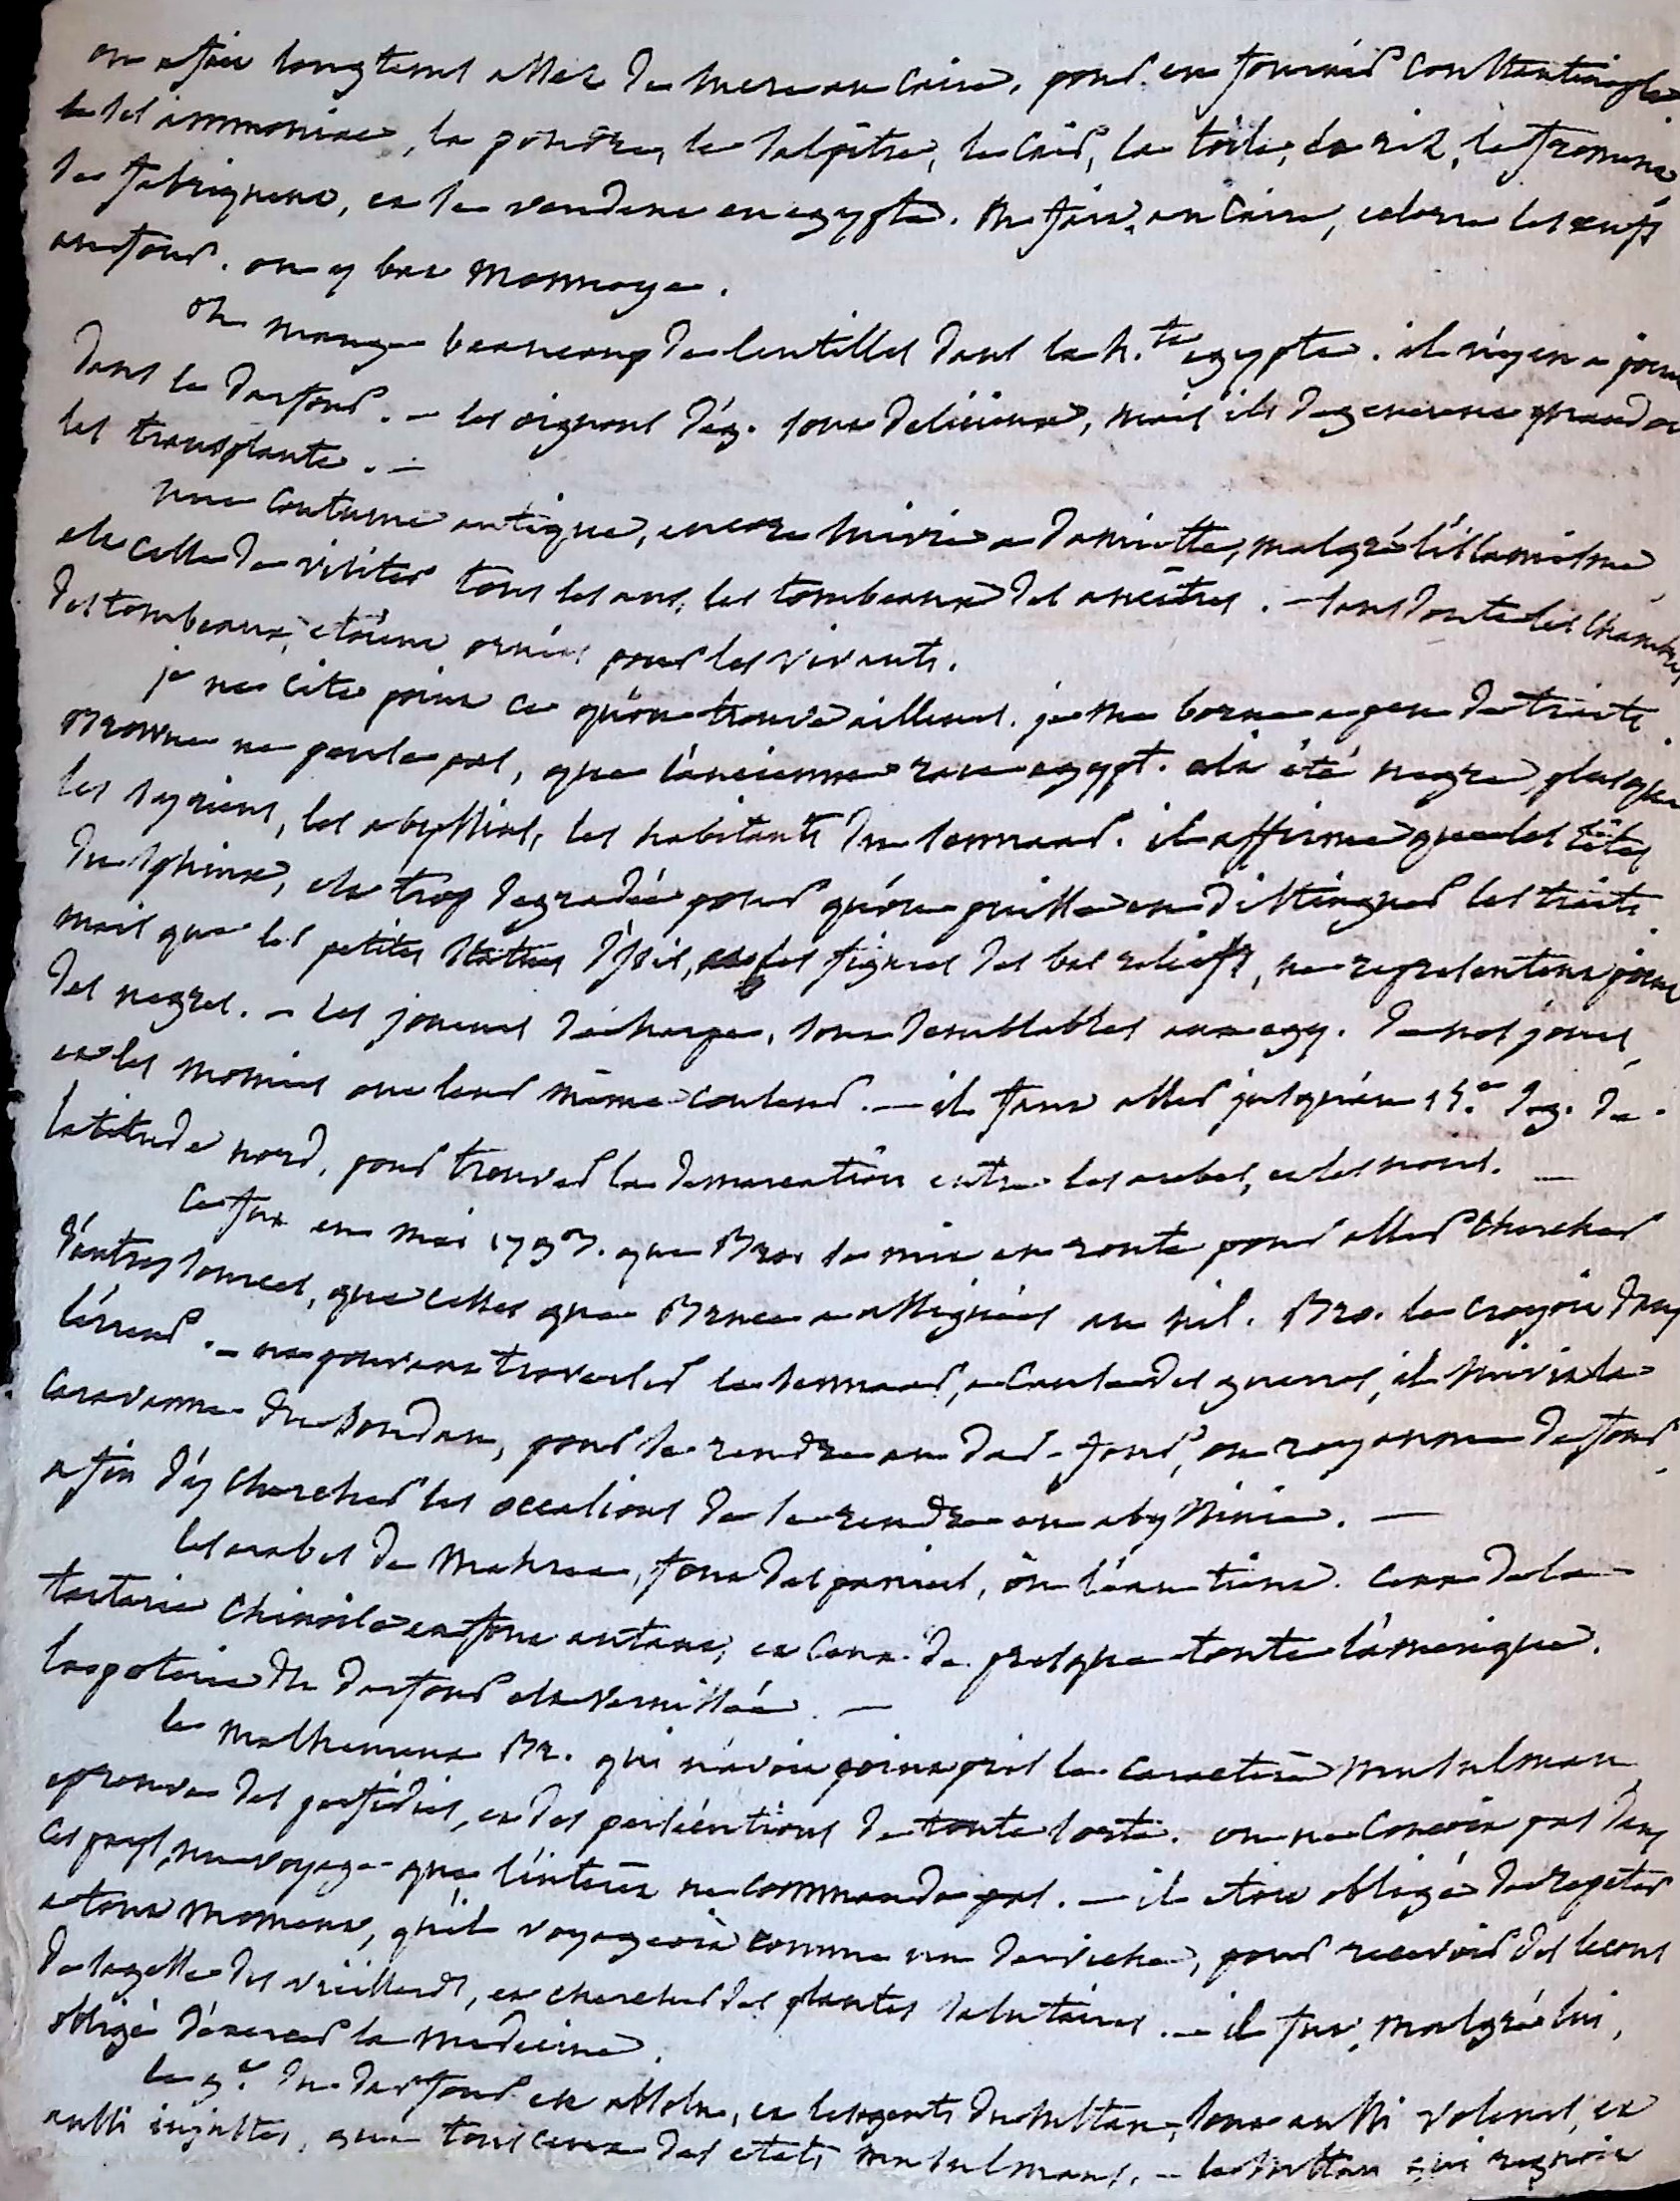 on a fait longtems assez de sucre au Caire, pour en fournir Constantinople
le sel ammoniac, la poudre, le salpêtre, le cuir, la toile, le riz, le froment
se fabriquent, et se vendent en egypte. on fait, au Caire, eclorre les œufs
au four. on y bat monnoye.
on mange beaucoup de lentilles dans la h.te egypte. il n'y en a point
dans le darfour. – les oignons d'ég. sont delicieux, mais ils degenerent quand on
les transplante. –
une coutume antique, encore suivie a damiette, malgré l'islamisme
est celle de visiter tous les ans, les tombeaux des ancêtres. – sans doute les chambres
des tombeaux, etoient ornées pour les vivants.
je ne cite point ce qu'on trouve ailleurs. je me borne a peu de traits.
Browne ne pense pas, que l'ancienne race egypt. ait été negre, plus que
les syriens, les abyssins, les habitants du sennaar. il affirme que les têtes
du sphinx, est trop degradée pour qu'on puisse en distinguer les traits
mais que les petites statues d'isis, et les figures des bas reliefs, ne representent point
des negres. – les joueurs d'écharpe, sont semblables aux egy. de nos jours,
et les momies ont leur même couleur. – il faut aller jusqu'au 15.e deg. de
latitude nord, pour trouver la demarcation entre les arabes, et les noirs. –
Ce fut en mai 1793. que Bro. se mit en route pour aller chercher
d'autres sources, que celles que Bruce a assignées au nil. Bro. le croyoit dans
l'erreur. – ne pouvant traverser le sennaar, a cause des guerres, il suivit la
caravanne du soudan, pour se rendre au dar-four, ou royaume de four
afin d'y chercher les occasions de se rendre en abyssinie. –
les arabes de , font des paniers, où l'eau tient. ceux de la
tartarie chinoise en font autant, et ceux de presque toute l'amerique.
la poterie du darfour est vernissée. –
le malheureux Br. qui n'avoit point pris le caractère musulman
eprouva des perfidies, et des persécutions de toute sorte. on ne conçoit pas dans
ces pays, un voyage que l'intérêt ne commande pas. – il etoit obligé de repeter
a tout moment, qu'il voyageoit comme un derviche, pour recevoir des lecons
de sagesse des vieillards, et chercher des plantes salutaires. – il fut, malgré lui,
obligé d'exercer la medecine.
le g.t du darfour est absolu, et les agents du sultan, sont aussi voleurs, et
aussi injustes, que tous ceux des etats musulmans. – le sultan qui regnoit